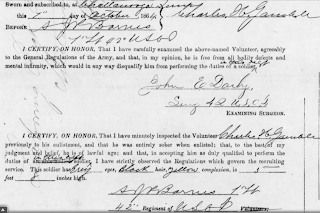 Sworn and subscribed to, at Chattanooga
this day of October 1864, Charles H Gamble
BEFORE S. W. Barnes
I CERTIFY, ON HONOR, That I have carefully examined the above-named Volunteer, agreeably
to the General Regulations of the Army, and that, in my opinion, he is free from all bodily defects and
mental infirmity, which would in any way disqualify him from performing the duties of a soldier.
John E Darby
EXAMINING SURGEON.
I CERTIFY, ON HONOR, That I have minutely inspected the Volunteer Charles H Gamble
previously to his enlistment, and that he was entirely sober when enlisted; that, to the best of my
judgment and belief, he is of lawful age; and that, in accepting him as duly qualified to perform the
duties of soldier, I have strictly observed the Regulations which govern the recruiting
service. This soldier has grey eyes, black hair, yellow complexion, is 5
feet 8 inches high.
S. W. Barnes
Regiment of